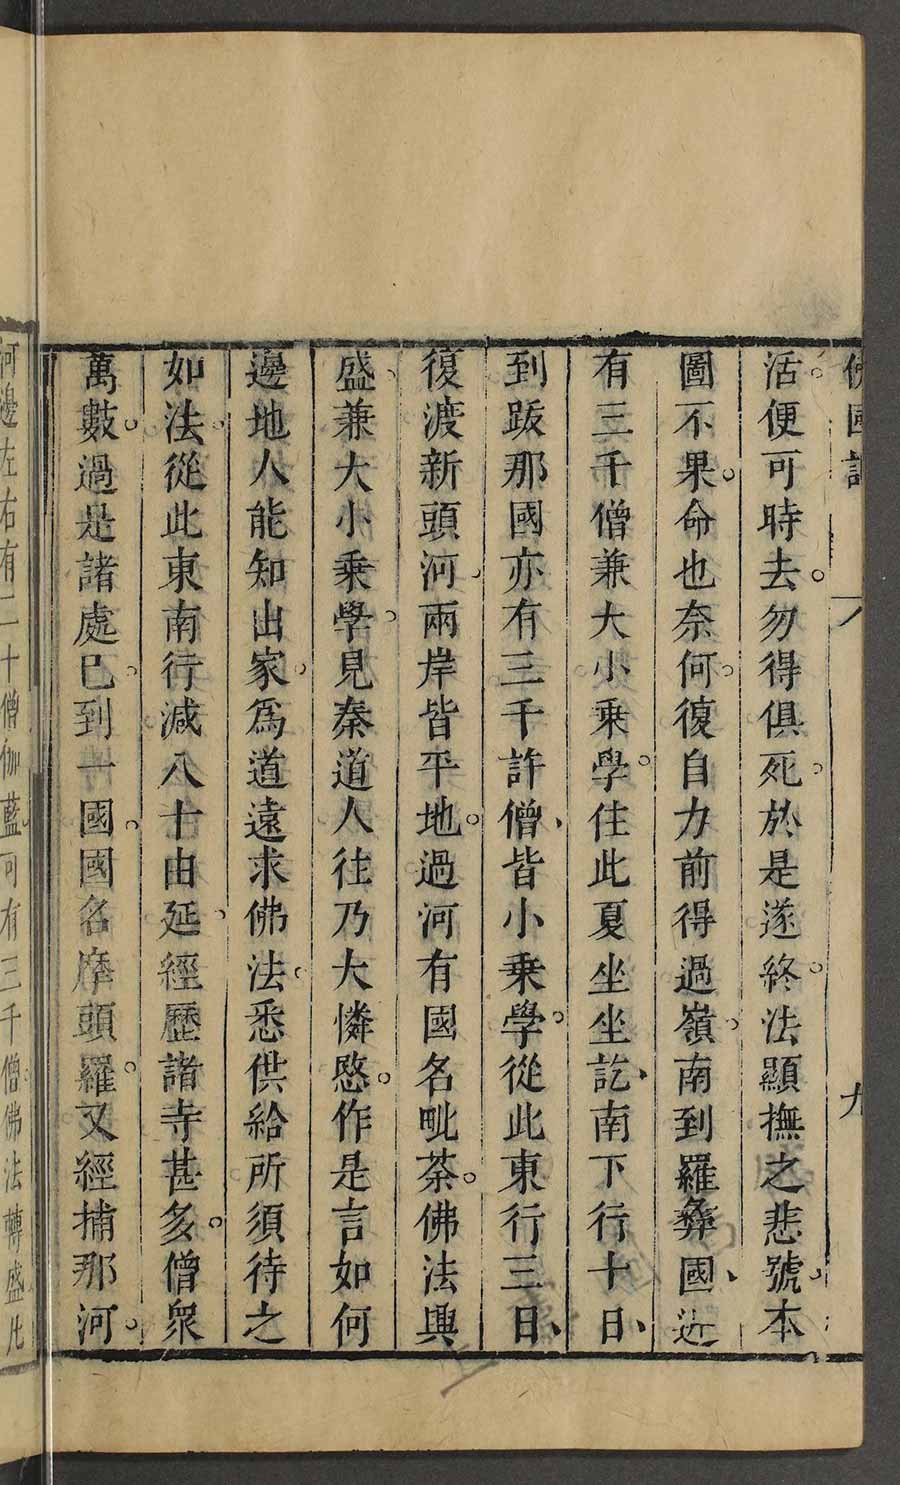 佛國記 八 九
活便可時去勿得俱死於是遂終法顯撫之悲號本
圖不果命也奈何復自力前得過嶺南到羅彝國近
有三千僧兼大小乗學住此夏坐坐訖南下行十日
到跋那國亦有三千許僧皆小乗學從此東行三日
復渡新頭河兩岸皆平地過河有國名毗荼佛法興
盛兼大小乗學見秦道人往乃大憐愍作是言如何
邊地人能知出家爲道遠求佛法悉供給所須待之
如法從此東南行減八十由延經歷諸寺甚多僧衆
萬數過是諸處已到一國國名摩頭羅又經捕那河
河邊左右有二十僧伽藍可有三千僧佛法轉盛凡